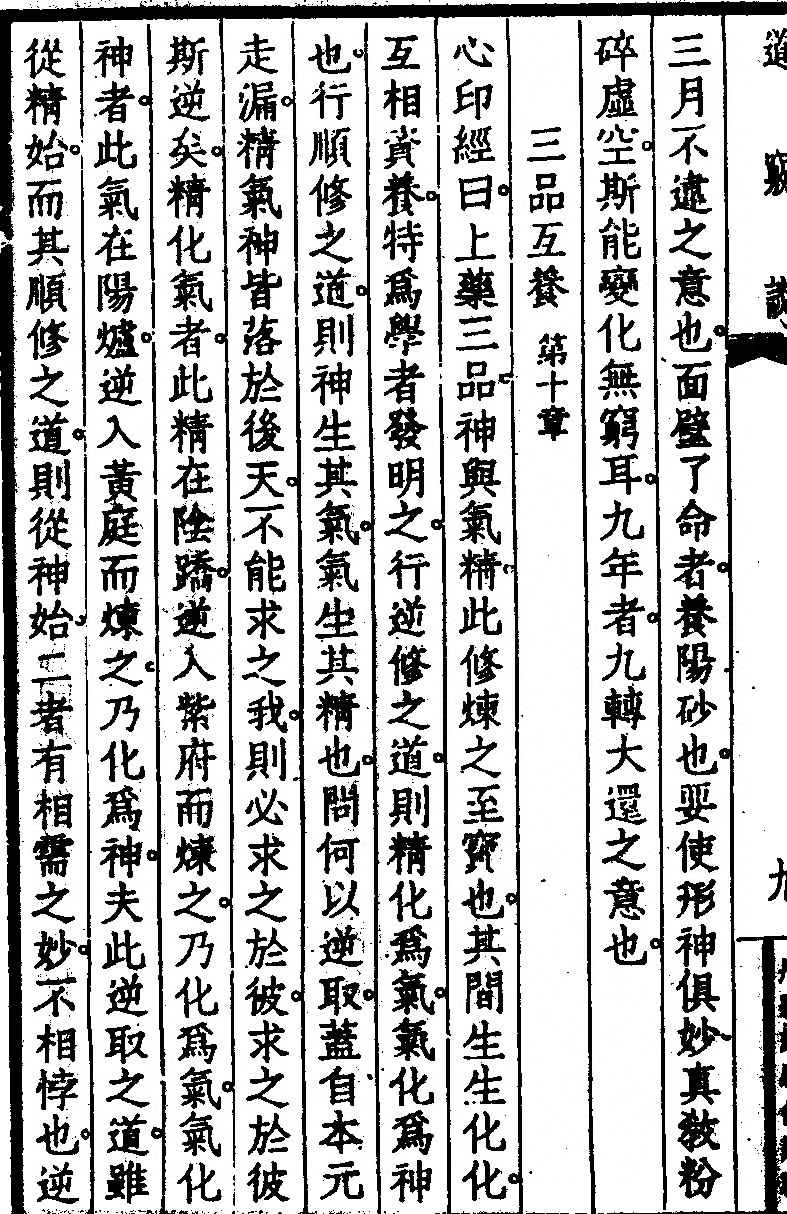 道竅談
九
三月不違之意也。面壁了命者。養陽砂也。要使形神俱妙真教粉
碎虛空。斯能變化無窮耳。九年者。九轉大還之意也。
三品互養 第十章
心印經曰。上藥三品。神與氣精。此修煉之至寶也。其間生生化化。
互相資養。特爲學者發明之。行逆修之道。則精化爲氣。氣化爲神
也。行順修之道。則神生其氣。氣生其精也。問何以逆取。蓋自本元
走漏。精氣神皆落於後天。不能求之我。則必求之於彼。求之於彼
斯逆矣。精化氣者。此精在陰蹻。逆入紫府而煉之。乃化爲氣。氣化
神者。此氣在陽爐。逆入黃庭而煉之。乃化爲神。夫此逆取之道。雖
從精始。而其順修之道。則從神始。二者有相需之妙。不相悖也。逆